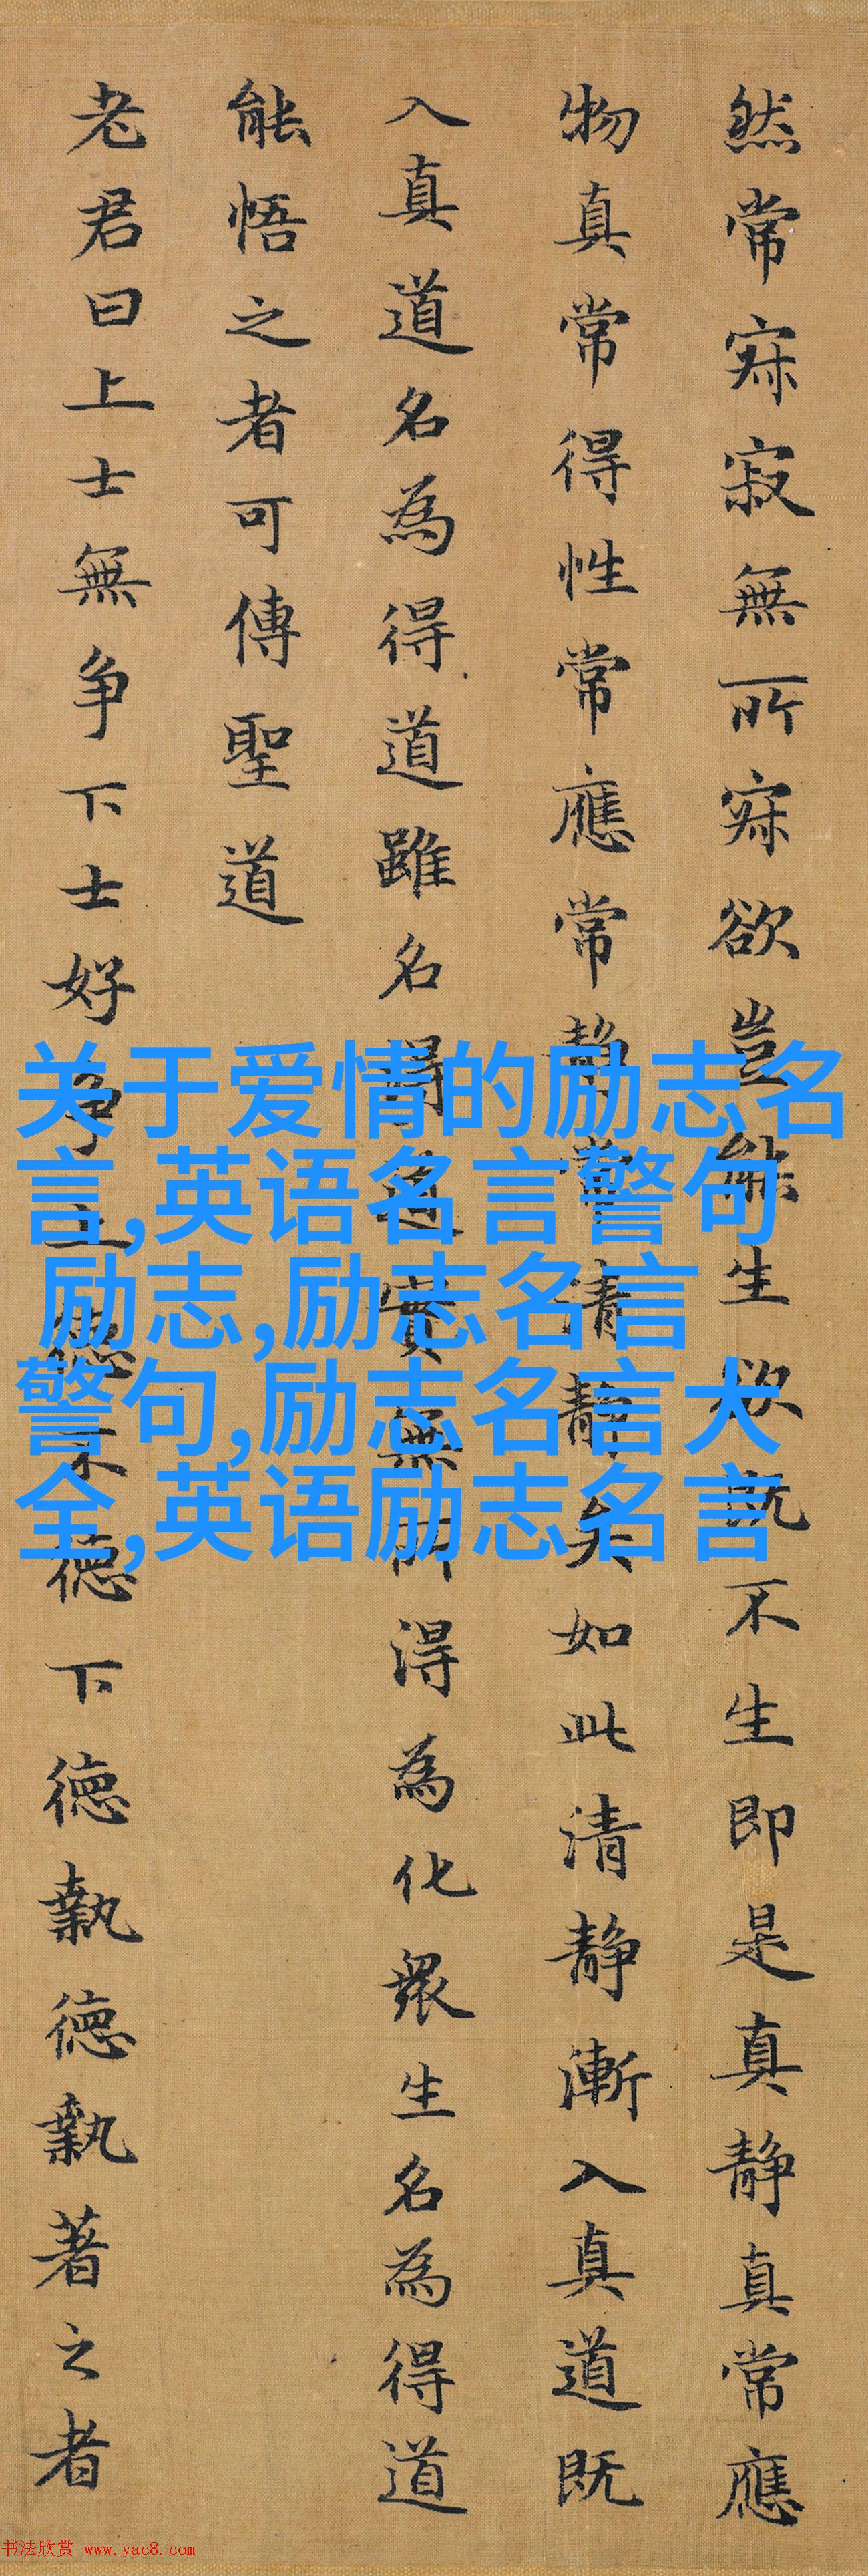 然常寂寂無所寂欲豈能生欲既不生即是真静真常應
物真常得性常應常静常清静矣如此清静漸入真道既
入真道名為得道雖名得道實無所得為化衆生名為得道
能悟之者可傳聖道
老君曰上士無争下士好争上德不德下德執德執著之者
关于爱情的励志名
言,英语名言警句
励志,励志名言
警句,励志名言大
全,英语励志名言
书法欣赏 www.yac8.com